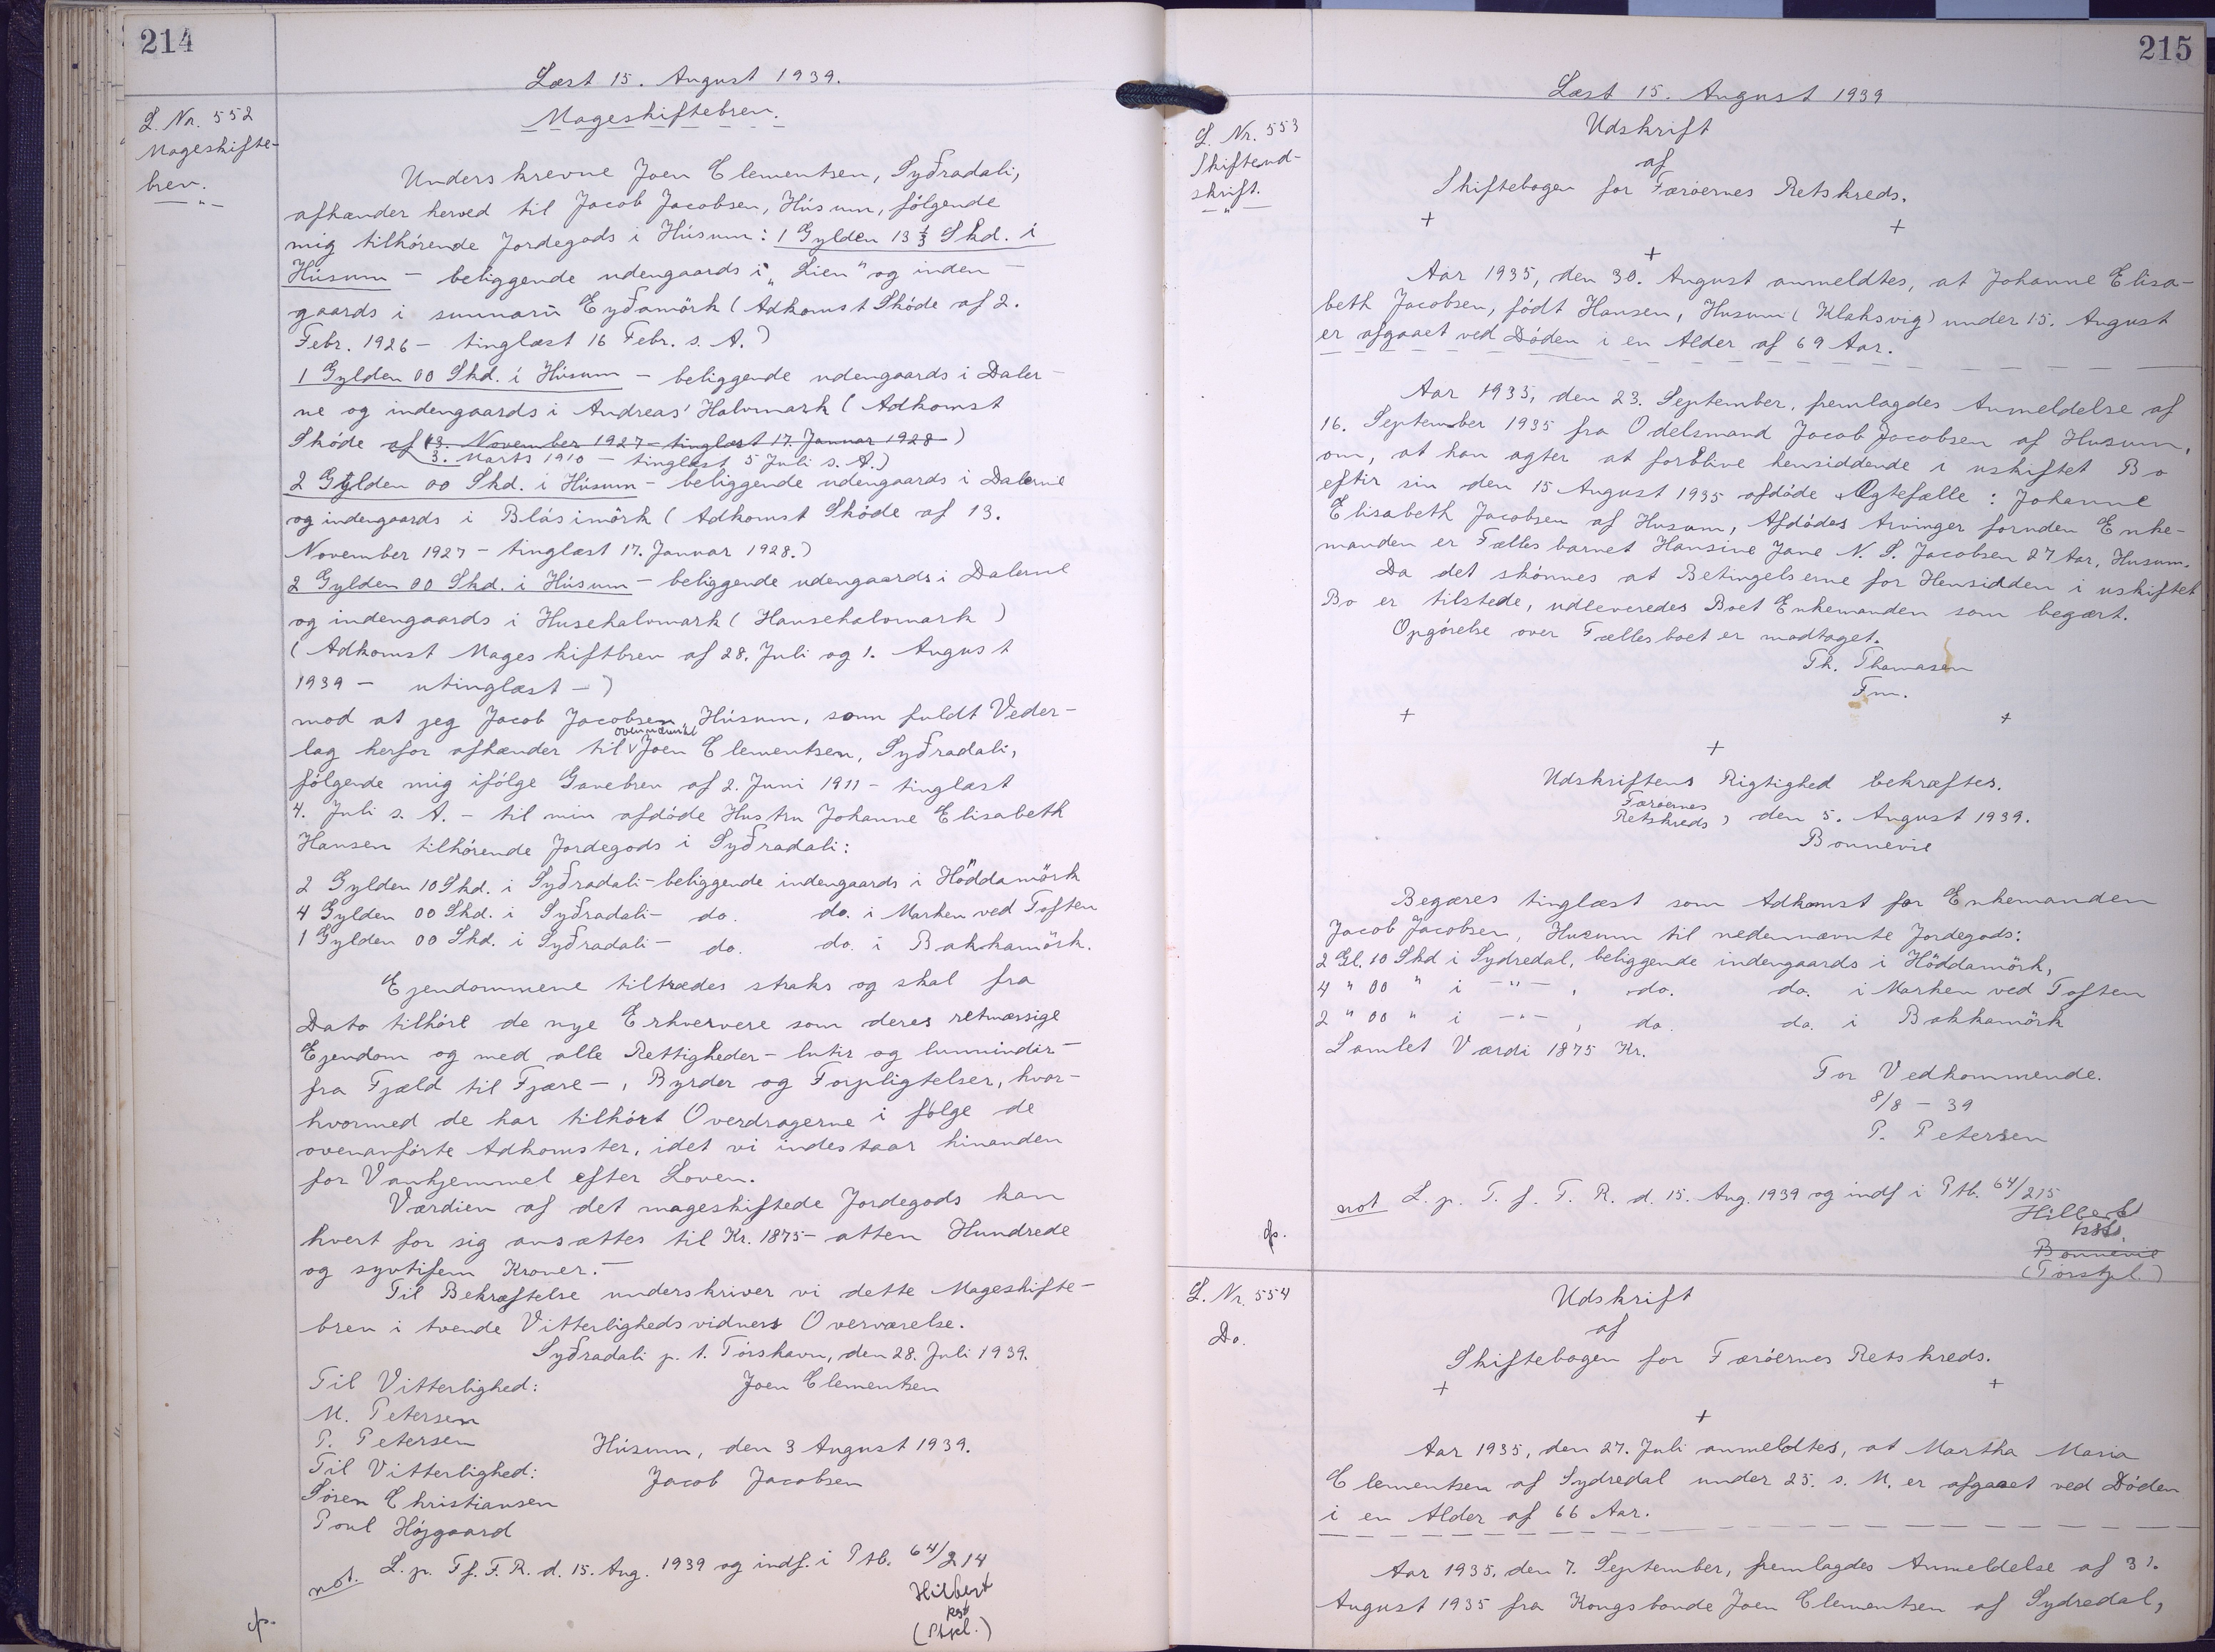 214
Læst 15. August 1939.
L. Nr. 552
Mageskifte-
brev.
— „ —
Mageskiftebrev.
Underskrevne Joen Clementsen, Syðradali,
afhænder herved til Jacob Jacobsen, Húsum, følgende
mig tilhörende Jordegods i Húsum: 1 Gylden 13 1/3 Skd. i
Húsum — beliggende udengaards i „Lien" og inden-
gaards i sunnaru Eyðamörk (Adkomst Sköde af 2.
Febr. 1926 — tinglæst 16 Febr. s. A.)
1 Gylden 00 Skd. i Húsum — beliggende udengaards i Daler-
ne og indengaards i Andreas' Halvmark (Adkomst
Sköde af (13. November 1927 — tinglæst 17. Januar 1928)
3. Marts 1910 — tinglæst 5 Juli s. A.)
2 Gylden 00 Skd. i Húsum — beliggende udengaards i Dalerne
og indengaards i Blásimörk (Adkomst Sköde af 13.
November 1927 — tinglæst 17. Januar 1928.)
2 Gylden 00 Skd. i Húsum — beliggende udengaards i Dalerne
og indengaards i Husehalvmark (Hansehalvmark)
(Adkomst Mageskiftbrev af 28. Juli og 1. August
1939 — utinglæst —)
mod at jeg Jacob Jacobsen, Húsum, som fuldt Veder-
ovennævnte
lag herfor afhænder til Joen Clementsen, Syðradali,
følgende mig ifölge Gavebrev af 2. Juni 1911 — tinglæst
4. Juli s. A. — til min afdöde Hustru Johanne Elisabeth
Hansen tilhörende Jordegods i Syðradali:
2 Gylden 10 Skd. i Syðradali — beliggende indengaards i Höddamörk
4 Gylden 00 Skd. i Syðradali — do. do. i Marken ved Toften
1 Gylden 00 Skd. i Syðradali — do. do. i Bakkamörk.
Ejendommene tiltrædes straks og skal fra
Dato tilhöre de nye Erhververe som deres retmæssige
Ejendom og med alle Rettigheder — lutir og lunnindir —
fra Fjæld til Fjære —, Byrder og Forpligtelser, hvor-
hvormed de har tilhört Overdragerne i følge de
ovenanförte Adkomster, idet vi indestaar hinanden
for Vanhjemmel efter Loven.
Værdien af det mageskiftede Jordegods kan
hvert for sig ansættes til Kr. 1875 — atten Hundrede
og syvtifem Kroner. —
Til Bekræftelse underskriver vi dette Mageskifte-
brev i tvende Vitterlighedsvidners Overværelse.
Syðradali p. t. Tórshavn, den 28. Juli 1939.
Til Vitterlighed: Joen Clementsen
M. Petersen
P. Petersen Húsum, den 3 August 1939.
Til Vitterlighed: Jacob Jacobsen
Sören Christiansen
Poul Höjgaard
not. L. p. T. f. F. R. d. 15. Aug. 1939 og indf. i Ptb. 64/214
Hilbert
kst
(Stpl.)
215
Læst 15. August 1939
L. Nr. 553
Skifteud-
skrift.
— „ —
Udskrift
af
Skiftebogen for Færöernes Retskreds.
+ +
+
Aar 1935, den 30. August anmeldtes, at Johanne Elisa-
beth Jacobsen, födt Hansen, Husum (Klaksvig) under 15. August
er afgaaet ved Döden i en Alder af 69 Aar.
Aar 1935, den 23. September, fremlagdes Anmeldelse af
16. September 1935 fra Odelsmand Jacob Jacobsen af Husum,
om, at han agter at forblive hensiddende i uskiftet Bo
eftir sin den 15 August 1935 afdöde Ægtefælle: Johanne
Elisabeth Jacobsen af Husum, Afdödes Arvinger foruden Enke-
manden er Fællesbarnet Hansine Jane N. S. Jacobsen 27 Aar, Husum.
Da det skönnes at Betingelserne for Hensidden i uskiftet
Bo er tilstede, udleveredes Boet Enkemanden som begært.
Opgörelse over Fællesboet er modtaget.
Th. Thomasen
Fm.
+ +
+
Udskriftens Rigtighed bekræftes.
Færöernes
Retskreds, den 5. August 1939.
Bonnevie
Begæres tinglæst som Adkomst for Enkemanden
Jacob Jacobsen, Husum til nedennævnte Jordegods:
2 Gl. 10 Skd i Sydredal, beliggende indengaards i Höddamörk,
4 " 00 " i — " —, do. do. i Marken ved Toften
2 " 00 " i — " —, do. do. i Bakkamörk
Samlet Værdi 1875 Kr.
For Vedkommende.
8/8 — 39
P. Petersen
not L. p. T. f. F. R. d. 15. Aug. 1939 og indf i Ptb. 64/215
Hilbert
kst.
Bonnevie
L. Nr. 554
Do.
Udskrift
af
Skiftebogen for Færöernes Retskreds.
+ +
+
Aar 1935, den 27. Juli anmeldtes, at Martha Maria
Clementsen af Sydredal under 25. s. M. er afgaaet ved Döden
i en Alder af 66 Aar.
Aar 1935, den 7. September, fremlagdes Anmeldelse af 31.
August 1935 fra Kongsbonde Joen Clementsen af Sydredal,